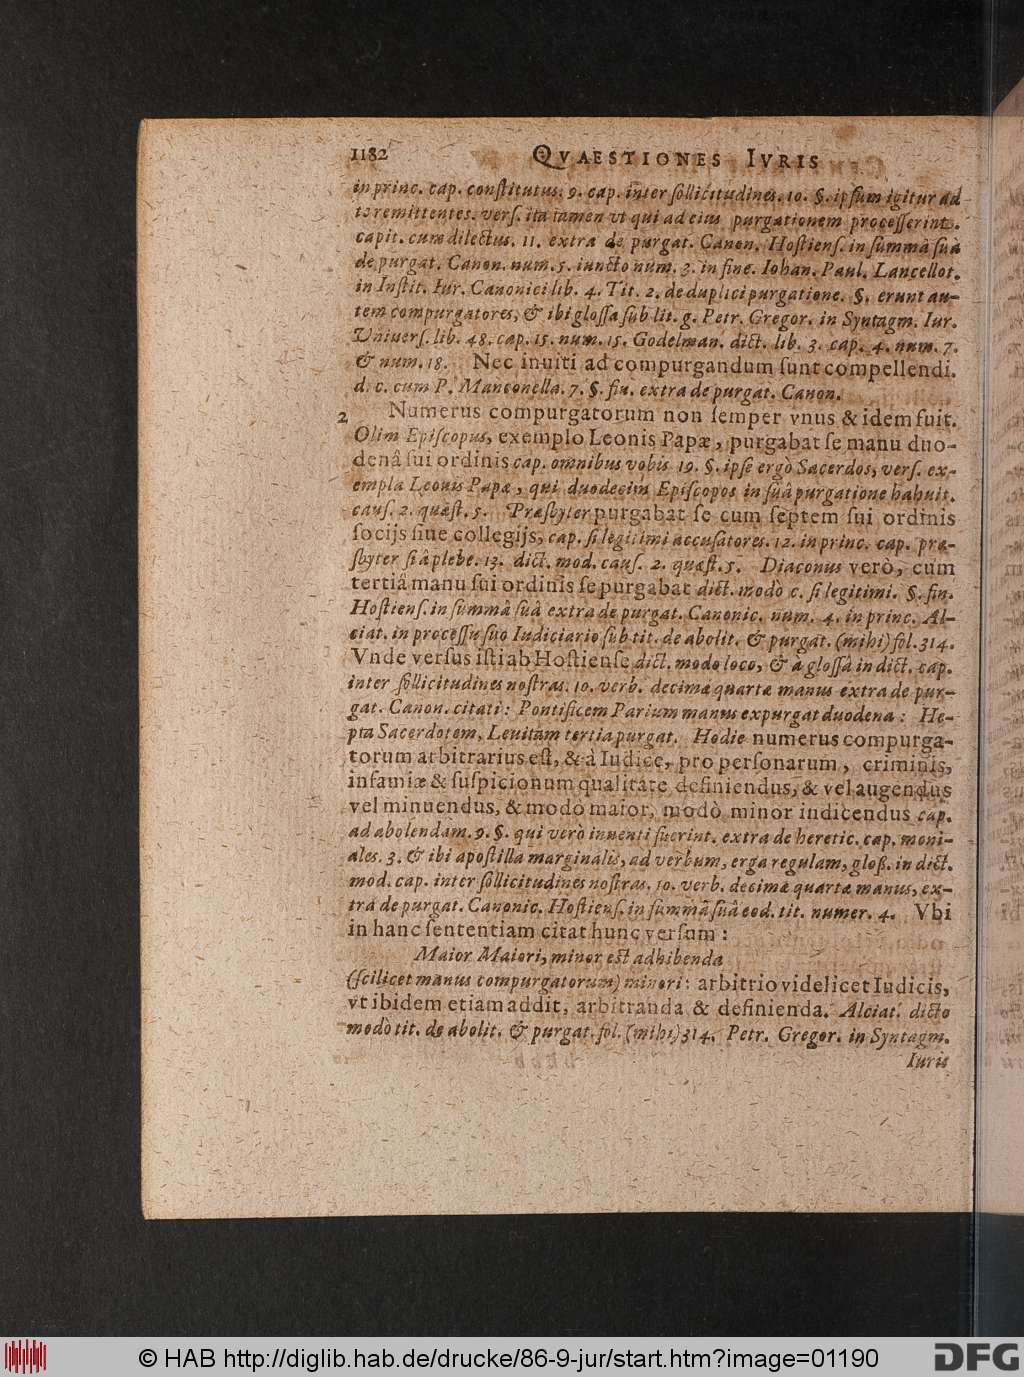 1182 QVAESTIONES IVRIS
in princ. cap. conſtitutus. 9. cap. inter ſollicitudines. 10. §. ipſum igitur ad
te remittentes. verſ. ita tamen vt qui ad eius purgationem proceſſerint.
capit. cum dilectus. 11. extra de purgat. Canon. Hoſtienſ. in ſummâ ſuâ
de purgat. Canon. num. 5. iuncto num. 3. in fine. Iohan. Paul. Lancellot.
in Inſtit. Iur. Canonici lib. 4. Tit. 2. de duplici purgatione. §. erunt au-
tem compurgatores, & ibi gloſſa ſub lit. g. Petr. Gregor. in Syntagm. Iur.
Vniuerſ. lib. 48. cap. 15. num. 15. Godelman. dict. lib. 3. cap. 4. num. 7.
& num. 18. Nec inuiti ad compurgandum ſunt compellendi.
d. c. cum P. Manconella. 7. §. fin. extra de purgat. Canon.
2 Numerus compurgatorum non ſemper vnus & idem fuit.
Olim Epiſcopus, exemplo Leonis Papæ, purgabat ſe manu duo-
denâ ſui ordinis cap. omnibus vobis 19. §. ipſe ergò Sacerdos, verſ. ex-
empla Leonis Papæ, qui duodecim Epiſcopos in ſuâ purgatione habuit.
cauſ. 2. quæſt. 5. Præſbyter purgabat ſe cum ſeptem ſui ordinis
ſocijs ſiue collegijs, cap. ſi legitimi accuſatores. 12. in princ. cap. præ-
ſbyter ſi â plebe. 13. dict. mod. cauſ. 2. quæſt. 5. Diaconus verò, cum
tertiâ manu ſui ordinis ſe purgabat dict. modò c. ſi legitimi. §. fin.
Hoſtienſ. in ſummâ ſuâ extra de purgat. Canonic. num. 4. in princ. Al-
ciat. in proceſſu ſuo Iudiciario ſub tit. de abolit. & purgat. (mihi) fol. 314.
Vnde verſus iſti ab Hoſtienſe dict. modo loco, & à gloſſâ in dict. cap.
inter ſollicitudines noſtras. 10. verb. decima quarta manus extra de pur-
gat. Canon. citati: Pontificem Parium manus expurgat duodena: He-
pta Sacerdotem, Leuitam tertia purgat. Hodie numerus compurga-
torum arbitrarius eſt, & à Iudice, pro perſonarum, criminis,
infamiæ & ſuſpicionum qualitate definiendus, & vel augendus
vel minuendus, & modò maior, modò minor indicendus cap.
ad abolendam. 9. §. qui verò inuenti fuerint. extra de heretic. cap. moni-
ales. 3. & ibi apoſtilla marginalis, ad verbum, erga regulam, gloſſ. in dict.
mod. cap. inter ſollicitudines noſtras. 10. verb. decima quarta manus, ex-
tra de purgat. Canonic. Hoſtienſ. in ſummâ ſuâ eod. tit. numer. 4. Vbi
in hanc ſententiam citat hunc verſum:
Maior Maiori, minor est adhibenda
(ſcilicet manus compurgatorum) minori: arbitrio videlicet Iudicis,
vt ibidem etiam addit, arbitranda & definienda. Alciat. dicto
modò tit. de abolit. & purgat. fol. (mihi) 314. Petr. Gregor. in Syntagm.
Iuris
© HAB http://diglib.hab.de/drucke/86-9-jur/start.htm?image=01190
DFG